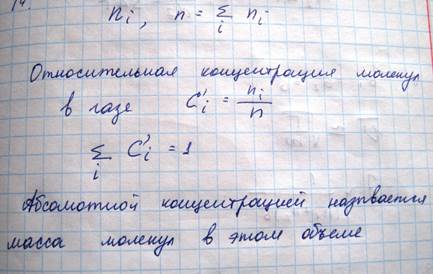 14.
nᵢ, n = Σᵢ nᵢ
Относительная концентрация молекул
в газе C'ᵢ = nᵢ/n
Σᵢ C'ᵢ = 1
Абсолютной концентрацией назтвается
масса молекул в этом объеме